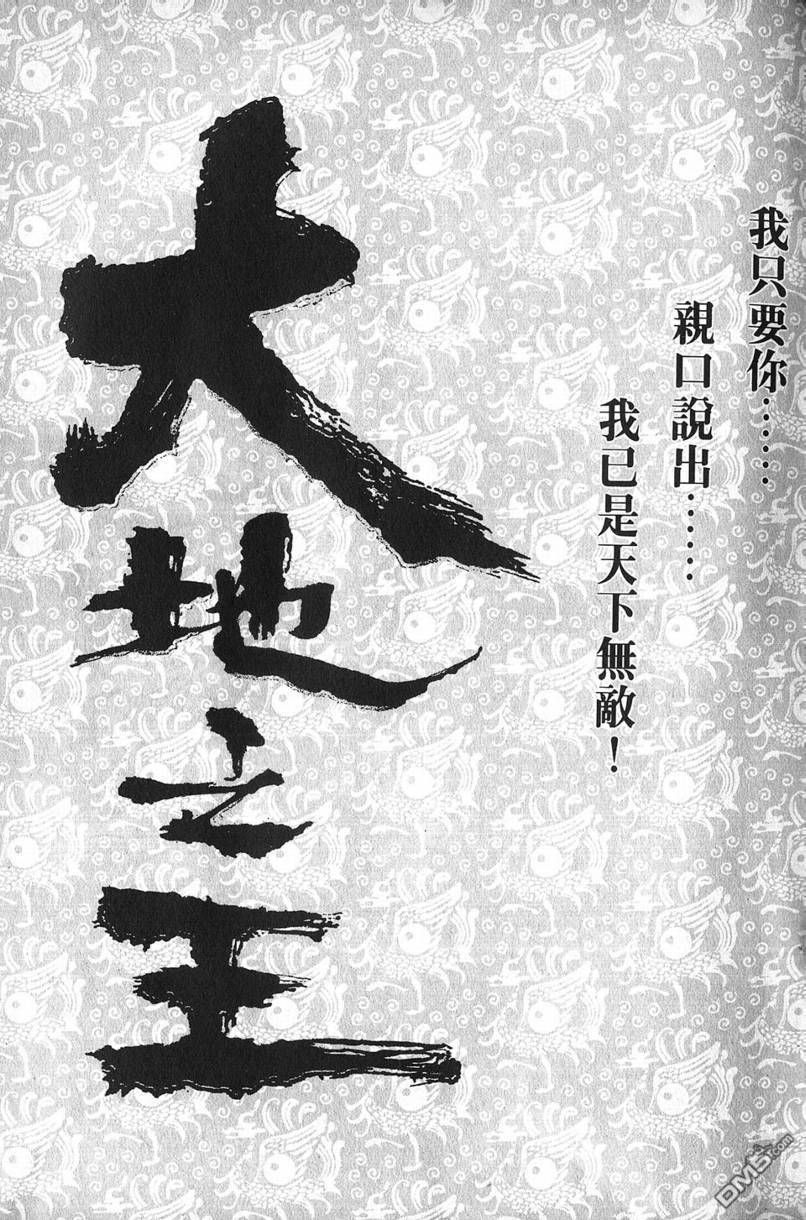 我只要你……
親口說出……
我已是天下無敵！
大地之王
DM5.com